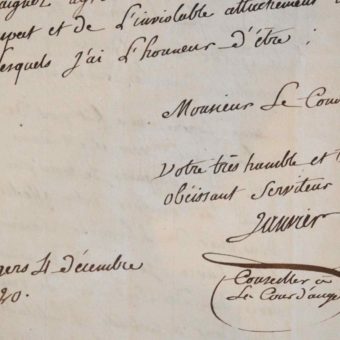 aignez agr
spect et de L'inviolable attachement a
lesquels j'ai L'honneur d'être :
Monsieur Le Com
Votre très humble et t
Obéissant Serviteur
Janvier
gers 4 décembre
20.
Conseiller à
La Cour d'ange